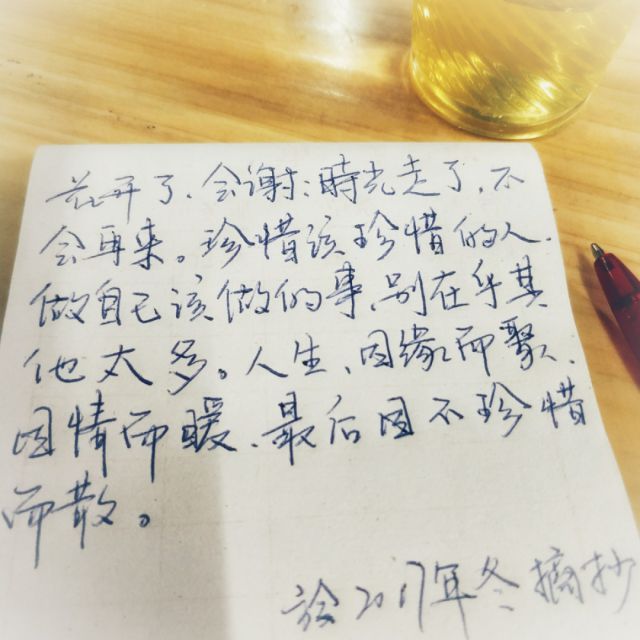 花开了、会谢；時光走了、不
会再来。珍惜该珍惜的人、
做自己该做的事、别在乎其
他太多。人生、因缘而聚、
因情而暖、最后因不珍惜
而散。
於2017年冬摘抄